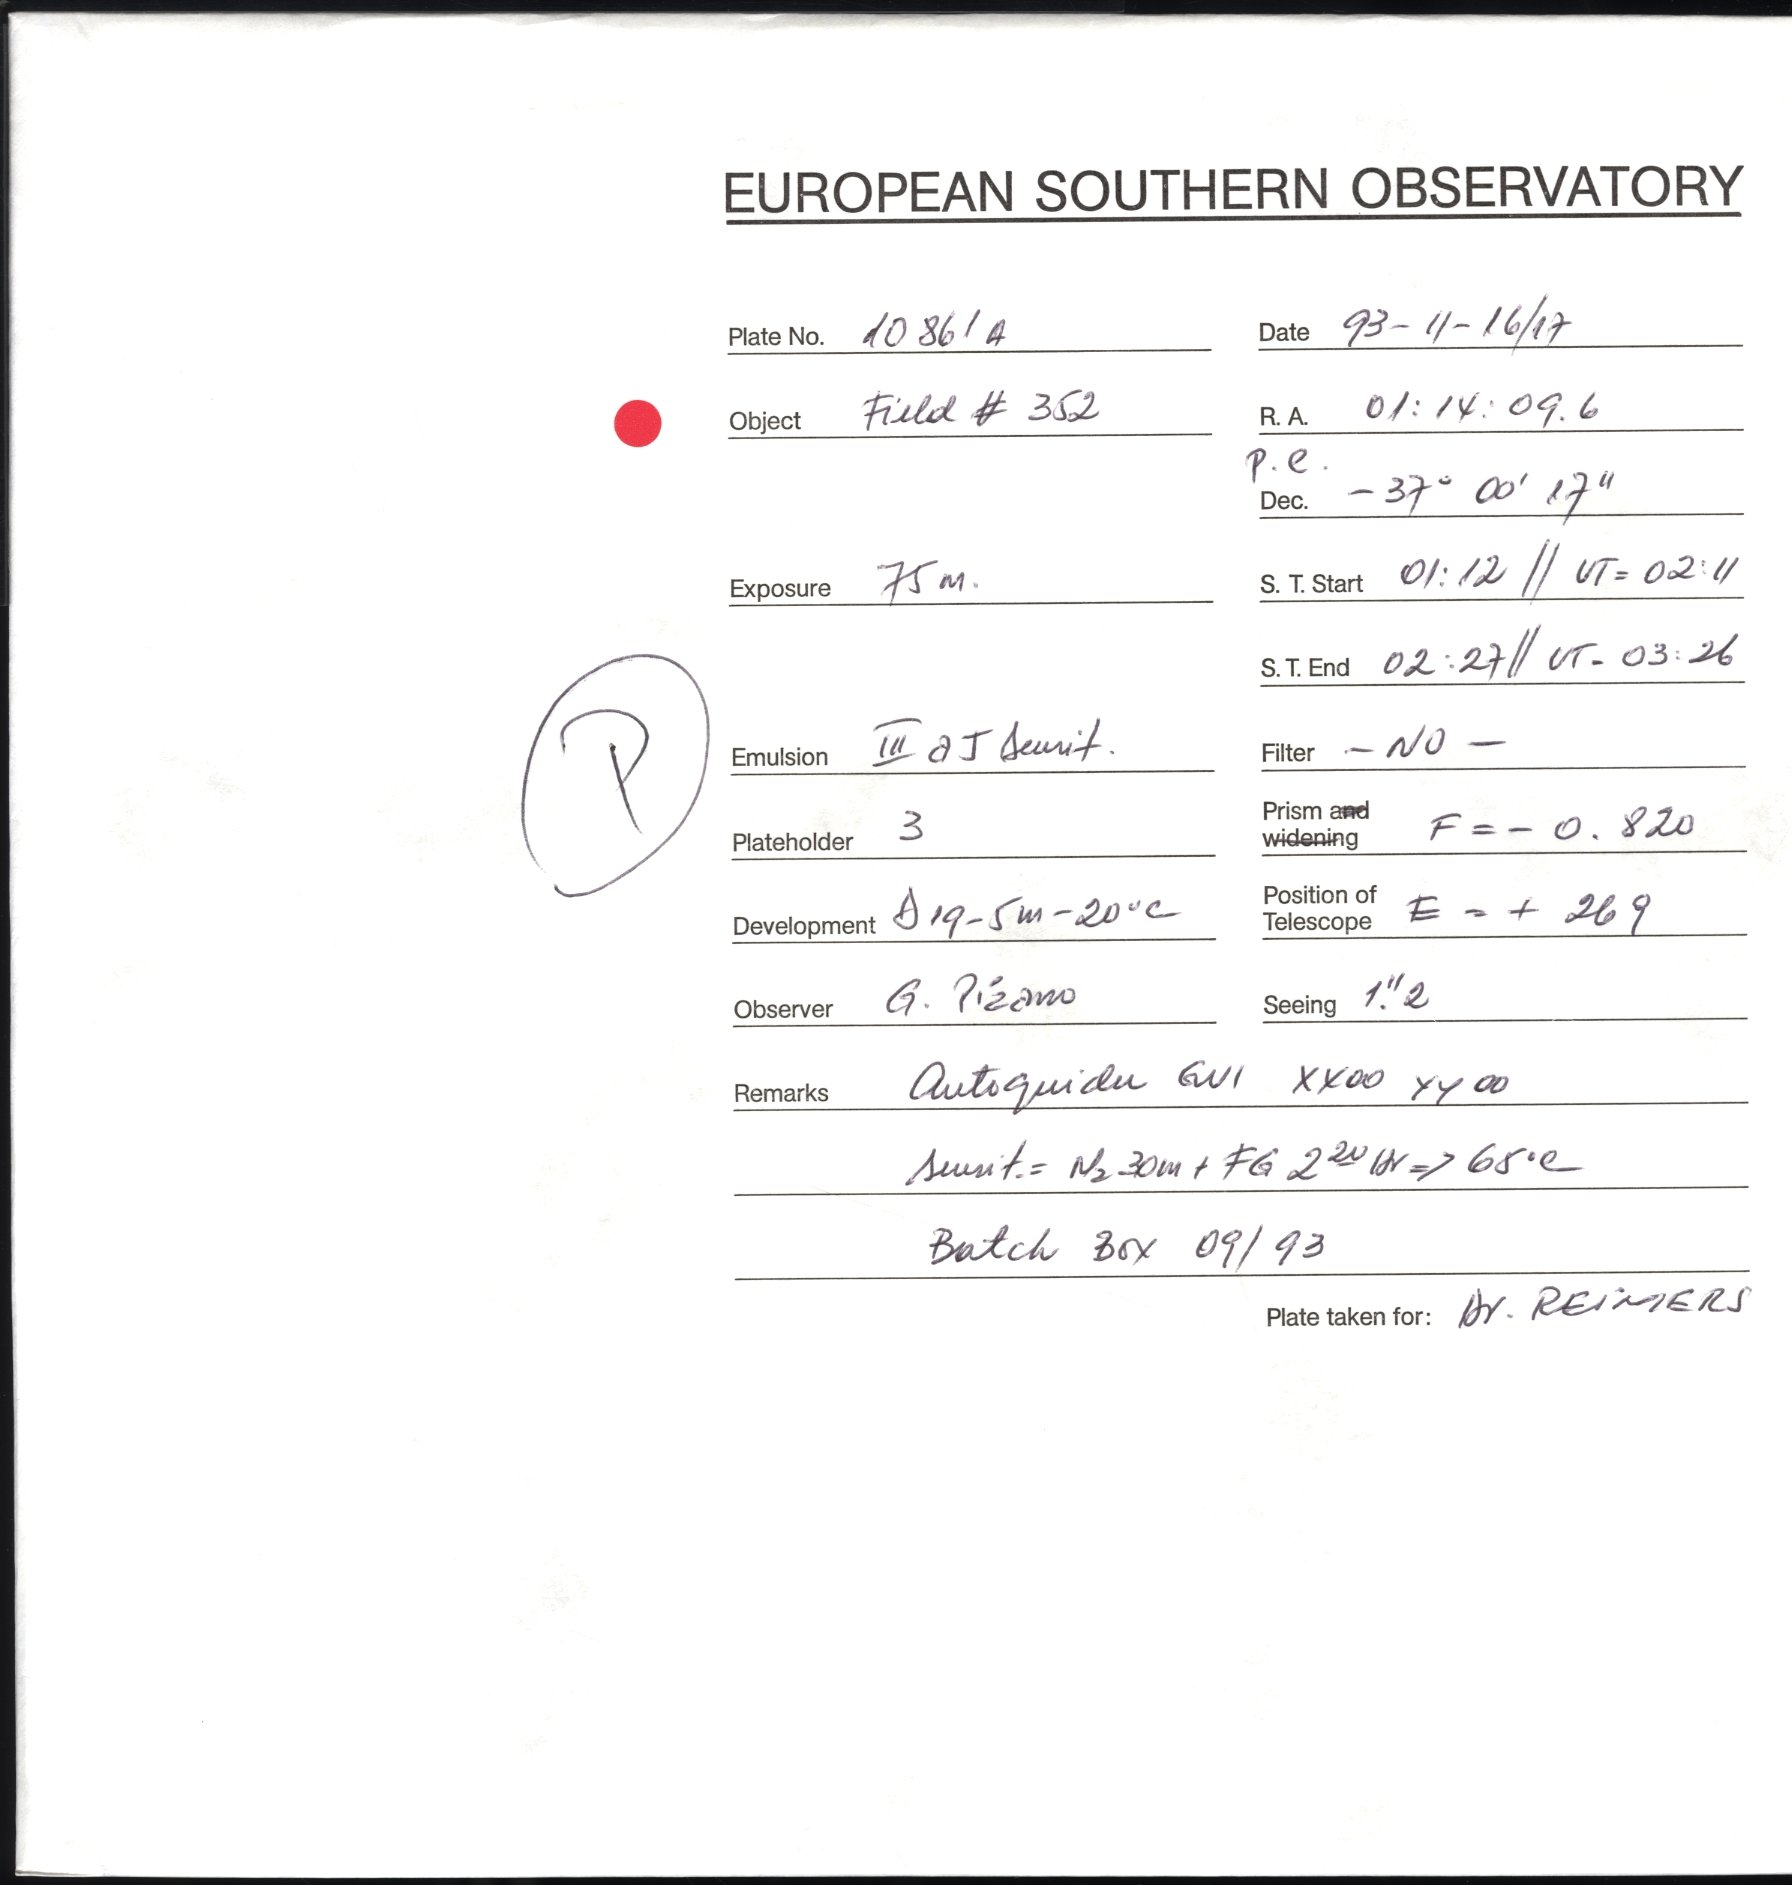 EUROPEAN SOUTHERN OBSERVATORY
Plate No. 10861A Date 93-11-16/17
Object Field # 352 R. A. 01:14:09.6
p.e.
Dec. -37° 00' 17"
Exposure 75m. S. T. Start 01:12 // UT= 02:11
S. T. End 02:27 // UT- 03:26
P
Emulsion III a J Sensit. Filter - NO -
Plateholder 3 Prism and widening F = - 0.820
Development D19-5m-20°C Position of Telescope E = + 269
Observer G. Pizarro Seeing 1."2
Remarks Autoguider GV1 XX00 YY00
Sensit.= N2 30m + FG 2 20 Hr => 65°C
Batch Box 09/93
Plate taken for: Dr. REIMERS